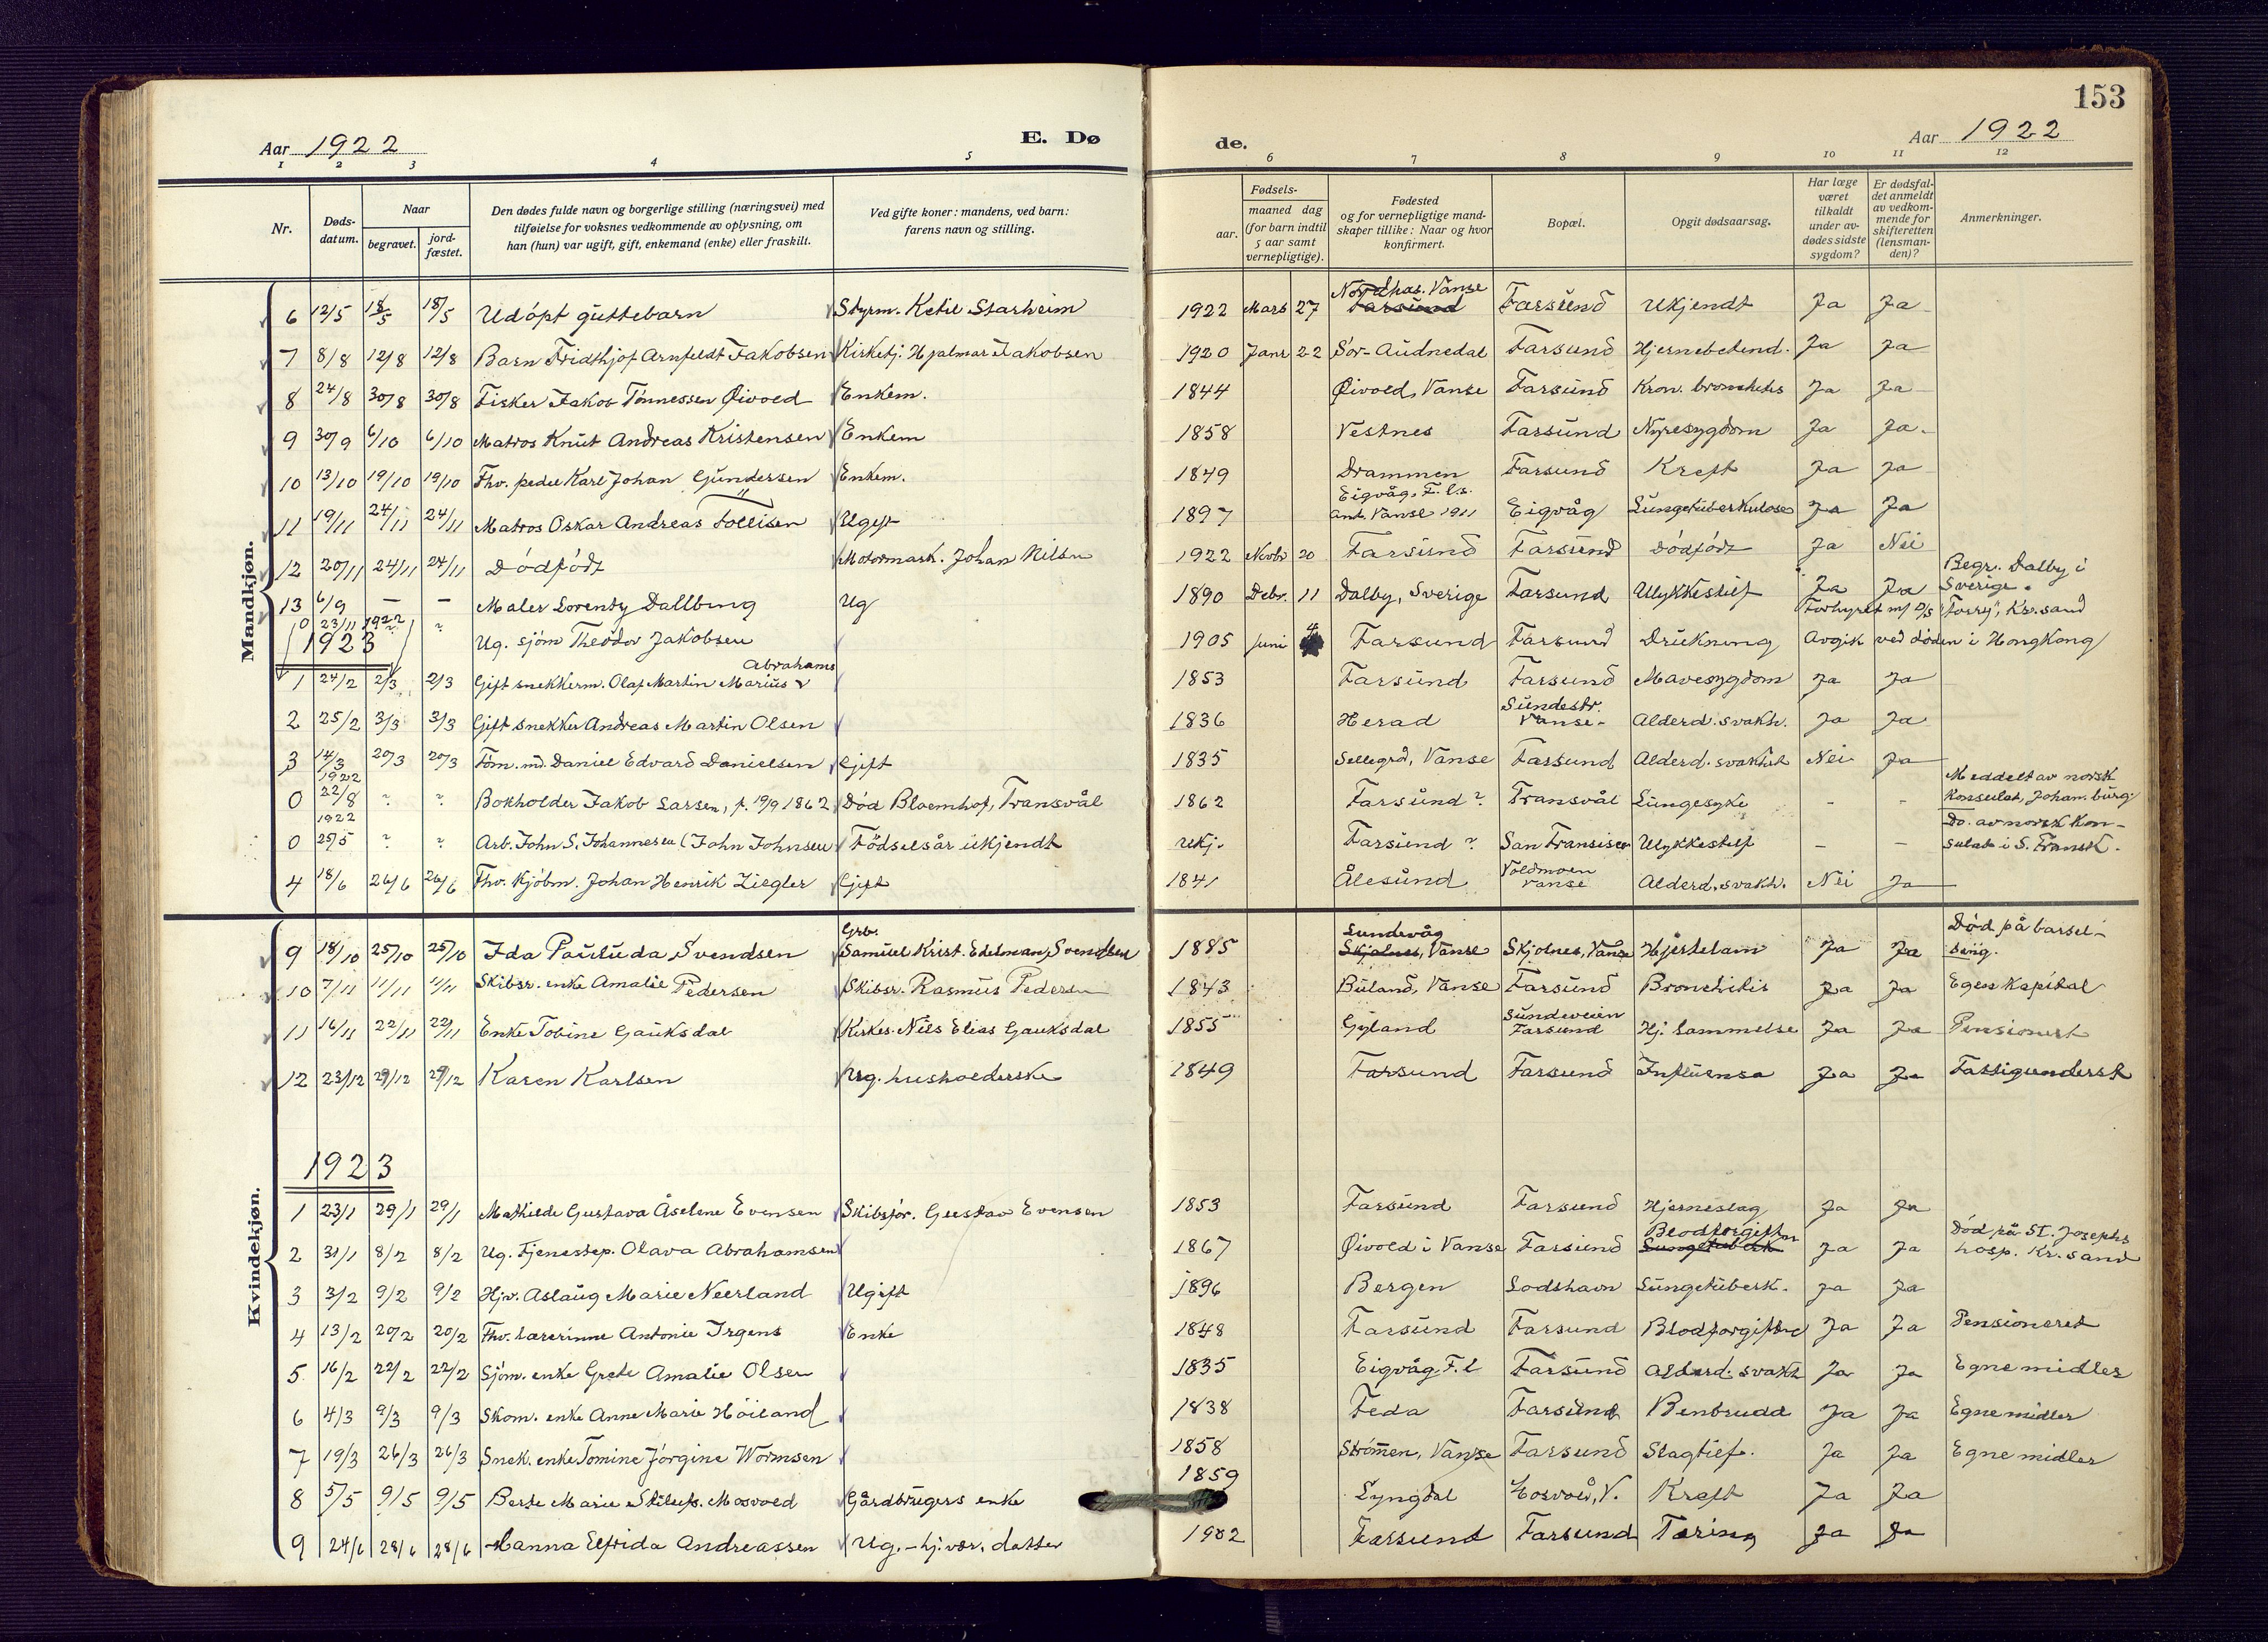 153
Aar 1922 E. Dø de. Aar 1922
1 2 3 4 5 6 7 8 9 10 11 12
Nr. Døds-datum. Naar begravet. jord-fæstet. Den dødes fulde navn og borgerlige stilling (næringsvei) med tilføielse for voksnes vedkommende av oplysning, om han (hun) var ugift, gift, enkemand (enke) eller fraskilt. Ved gifte koner: mandens, ved barn: farens navn og stilling. Fødsels- aar. maaned dag (for barn indtil 5 aar samt vernepligtige). Fødested og for vernepligtige mandskaper tillike: Naar og hvor konfirmert. Bopæl. Opgit dødsaarsag. Har læge været tilkaldt under avdødes sidste sygdom? Er dødsfaldet anmeldt av vedkommende for skifteretten (lensmanden)? Anmerkninger.
Mandkjøn.
6 12/5 18/5 18/5 Udöpt guttebarn Styrm. Ketil Starheim 1922 Mars 27 Nordhas. Vanse Farsund Farsund Ukjendt Ja Ja
7 8/8 12/8 12/8 Barn Fridthjof Arnfeldt Jakobsen Kirketj. Hjalmar Jakobsen 1920 Janr 22 Sör-Audnedal Farsund Hjernebetend. Ja Ja
8 24/8 30/8 30/8 Fisker Jakob Tönnessen Øivold Enkem. 1844 Øivold, Vanse Farsund Kron. bronchitis Ja Ja
9 30/9 6/10 6/10 Matros Knut Andreas Kristensen Enkem 1858 Vestnes Farsund Nyresygdom Ja Ja.
10 13/10 19/10 19/10 Fhv. pedel Karl Johan Gundersen Enkem. 1849 Drammen Farsund Kreft Ja Ja
11 19/11 24/11 24/11 Matros Oskar Andreas Tollisen Ugift 1897 Eigvåg, F. l.s. Vanse 1911 Eigvåg Lungetuberkulose Ja Ja
12 20/11 24/11 24/11 Dödfödt Motormask. Johan Nilsn 1922 Novbr 20 Farsund Farsund Dödfödt Ja Nei
13 6/9 – – Maler Lorentz Dallbung Ug 1890 Debr. 11 Dalby, Sverige Farsund Ulykkestilf Ja Ja Begr. Dalby i Sverige.
0 23/11 1922 ? ? Ug. sjöm Theodor Jakobsen 1905 Juni 4 Farsund Farsund Drukning Forhyret m/ D/S "Torry", Kr.sand Avgik ved döden i Hongkong
1923
1 24/2 2/3 2/3 Gift snekkerm. Olaf Martin Marius Abrahams 1853 Farsund Farsund Mavesygdom Ja Ja
2 25/2 3/3 3/3 Gift snekker Andreas Martin Olsen 1836 Herad Sundestr. Vanse- Alderd. svakh. Ja Ja
3 14/3 20/3 20/3 Töm. md. Daniel Edvard Danielsen Gift 1835 Sellegrd, Vanse Farsund Alderd. svakhet Nei Ja
0 1922 22/8 ? ? Bokholder Jakob Larsen, f. 19/9 1862 Död Bloemhof, Transvål 1862 Farsund? Transvål Lungesyke - - Meddelt av norsk Konsulat, Johan. burg.
0 1922 25/5 ? ? Arb. John S. Johannesen (John Johnsen Födselsår ukjendt ukj. Farsund ? San Fransisco Ulykkestilf – – Do. av norsk Konsulat i S. Fransk.
4 18/6 26/6 26/6 Fhv. Kjöbm. Johan Henrik Ziegler Gift 1841 Ålesund Voldmoen Vanse Alderd. svakh. Nei Ja
Kvindekjøn.
9 18/10 25/10 25/10 Ida Pauluda Svendsen Grb. Samuel Krist. Edelman Svendsen 1885 Lundevåg Skjolnes, Vanse Skjolnes, Vanse Hjertelam Ja Ja Död på barselseng.
10 7/11 11/11 11/11 Skibsr. enke Amalie Pedersen Skibsr. Rasmus Pedersen 1843 Buland, Vanse Farsund Bronchitis Ja Ja Egen Kapital
11 16/11 22/11 22/11 Enke Tobine Gauksdal Kirkes. Nils Elias Gauksdal 1855 Gyland Sundeveien Farsund Hj. Lammelse Ja Ja Pensionert
12 23/12 29/12 29/12 Karen Karlsen Ug. husholderske 1849 Farsund Farsund Influensa Ja Ja Fattigunderst
1923
1 23/1 29/1 29/1 Mathilde Gustava Åselene Evensen Skibsför. Gustav Evensen 1853 Farsund Farsund Hjerneslag Ja Ja
2 31/1 8/2 8/2 Ug. Tjenestep. Olava Abrahamsen 1867 Øivold i Vanse Farsund Blodforgiftn Lungetuberk Ja Ja Död på St. Josephs hosp. Kr. sand
3 3/2 9/2 9/2 Hjv. Aslaug Marie Neerland Ugift 1896 Bergen Lodshavn Lungetuberk. Ja Ja
4 13/2 20/2 20/2 Fhv. lærerinne Antonie Irgens Enke 1848 Farsund Farsund Blodforgiftn Ja Ja Pensioneret
5 16/2 22/2 22/2 Sjöm. enke Grete Amalie Olsen 1835 Eigvåg F. l Farsund Alderd. svakh Ja Ja Egne midler
6 4/3 9/3 9/3 Skom. enke Anne Marie Höiland 1838 Feda Farsund Benbrudd Ja Ja Egne midler
7 19/3 26/3 26/3 Snek. enke Tomine Jörgine Wormsen 1858 Strömen, Vanse Farsund Slagtilf. Ja Ja Egne midler
8 5/5 9/5 9/5 Berte Marie Mosvold Gårdbrugers enke 1859 Lyngdal Mosvold, V. Kreft Ja Ja
9 24/6 28/6 28/6 Hanna Elfrida Andreassen Ug. – hj. vær. datter 1902 Farsund Farsund Tæring Ja Ja